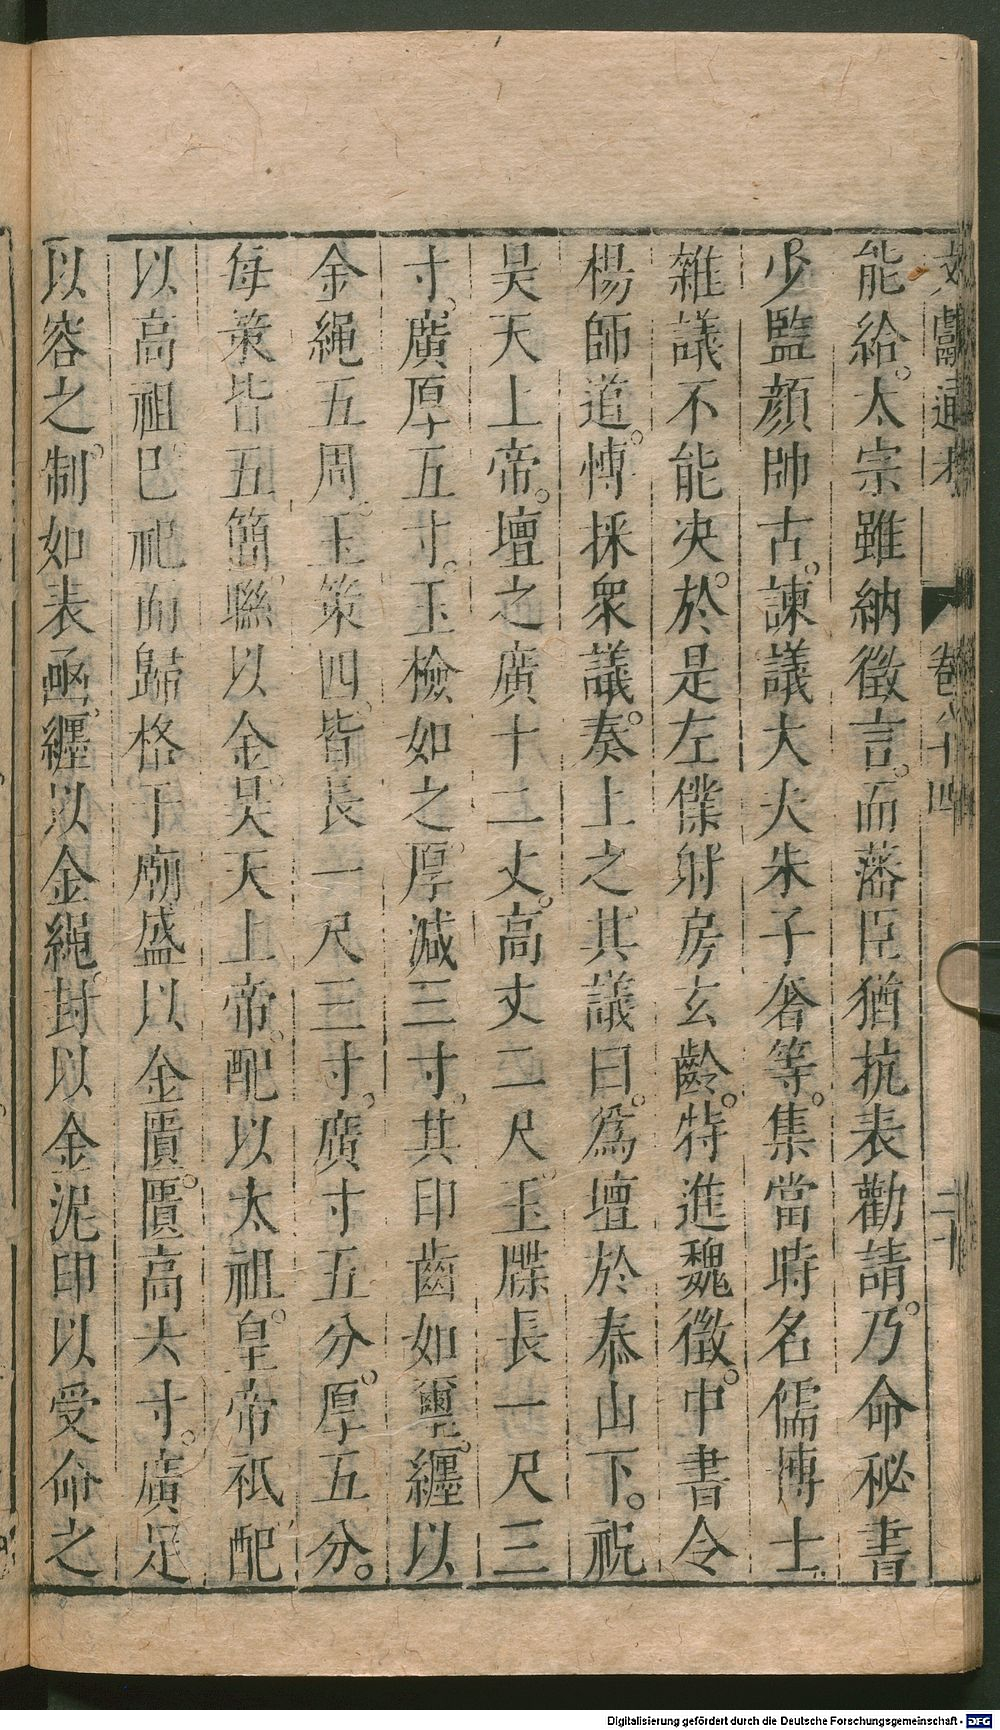 文獻通考 卷八十四 二十
能給。太宗雖納徵言。而藩臣猶抗表勸請。乃命秘書
少監顏師古。諫議大夫朱子奢等。集當時名儒博士
雜議不能决。於是左僕射房玄齡。特進魏徵。中書令
楊師道。博採衆議。奏上之。其議曰。爲壇於泰山下。祀
昊天上帝。壇之廣十二丈。高丈二尺。玉牒長一尺三
寸。廣厚五寸。玉檢如之。厚減三寸。其印齒如璽。纏以
金繩五周。玉策四。皆長一尺三寸。廣寸五分。厚五分。
每策皆五簡。聯以金。昊天上帝。配以太祖。皇帝祇配
以高祖。巳祀而歸格于廟。盛以金匱。匱高六寸。廣足
以容之。制如表函。纏以金繩。封以金泥。印以受命之
Digitalisierung gefördert durch die Deutsche Forschungsgemeinschaft - DFG